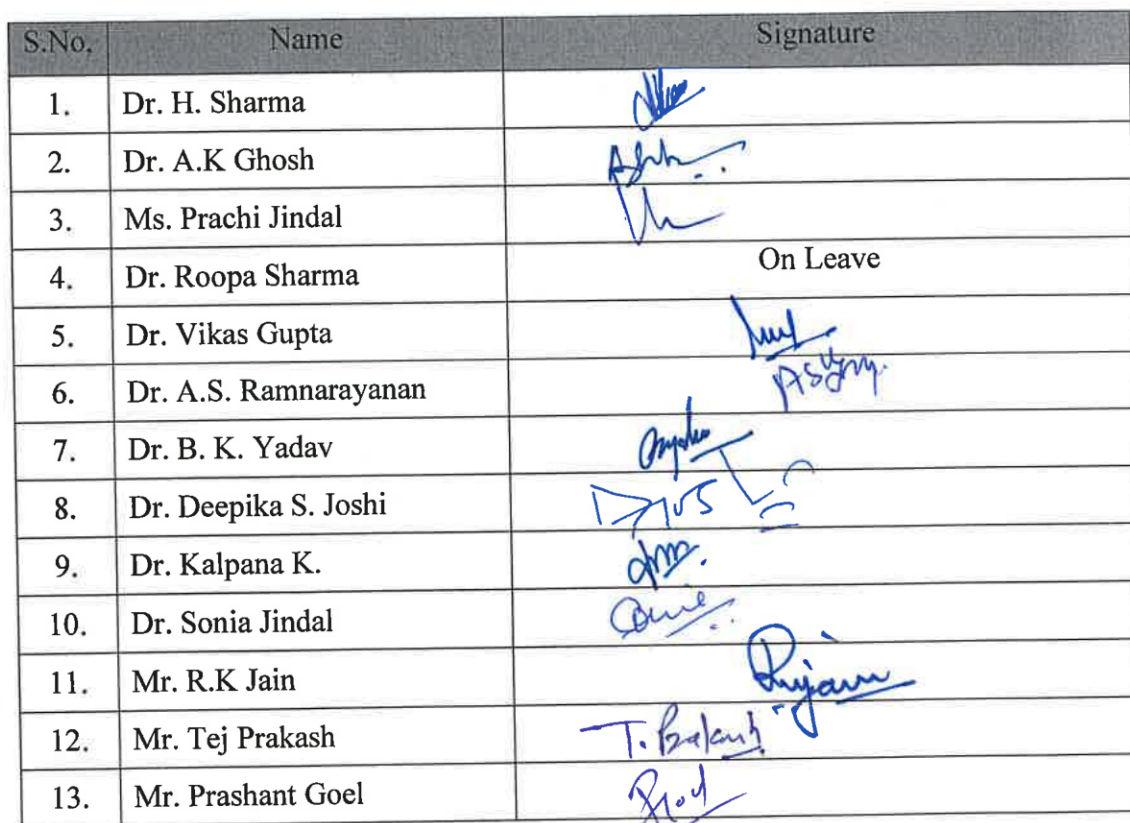 S.No. Name Signature
1. Dr. H. Sharma
2. Dr. A.K Ghosh
3. Ms. Prachi Jindal
4. Dr. Roopa Sharma On Leave
5. Dr. Vikas Gupta
6. Dr. A.S. Ramnarayanan
7. Dr. B. K. Yadav
8. Dr. Deepika S. Joshi
9. Dr. Kalpana K.
10. Dr. Sonia Jindal
11. Mr. R.K Jain
12. Mr. Tej Prakash
13. Mr. Prashant Goel